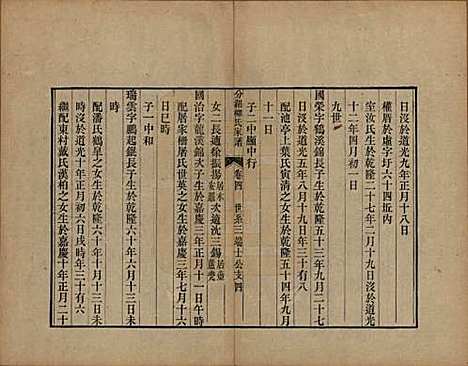 日沒於道光九年正月十八日
權厝於虛字圩六十四坵內
室汝氏生於乾隆二十七年二月十九日沒於道光
十二年四月初一日
九世
國榮字鶴溪錦長子生於乾隆五十三年九月二十七
日沒於道光五年八月十九日年三十有八
配池亭上葉氏寅清之女生於乾隆五十四年九月
十一日
子二中頤中行
分湖柳氏家譜 卷四 世系三 瑞士公支 四
女二長適徐振揚 次適沈三錫
國治字龍溪錦次子生於嘉慶三年正月十一日午時
配居家柵居氏世英之女生於嘉慶三年七月十六
日巳時
子一中和
瑞雲字鵬起銀長子生於乾隆六十年十月十三日未
時
配潘氏鶴皋之女生於乾隆六十年十月十三日未
時沒於道光六年正月初六日戌時年三十有六
繼配東村戴氏漢柏之女生於嘉慶十年正月二十